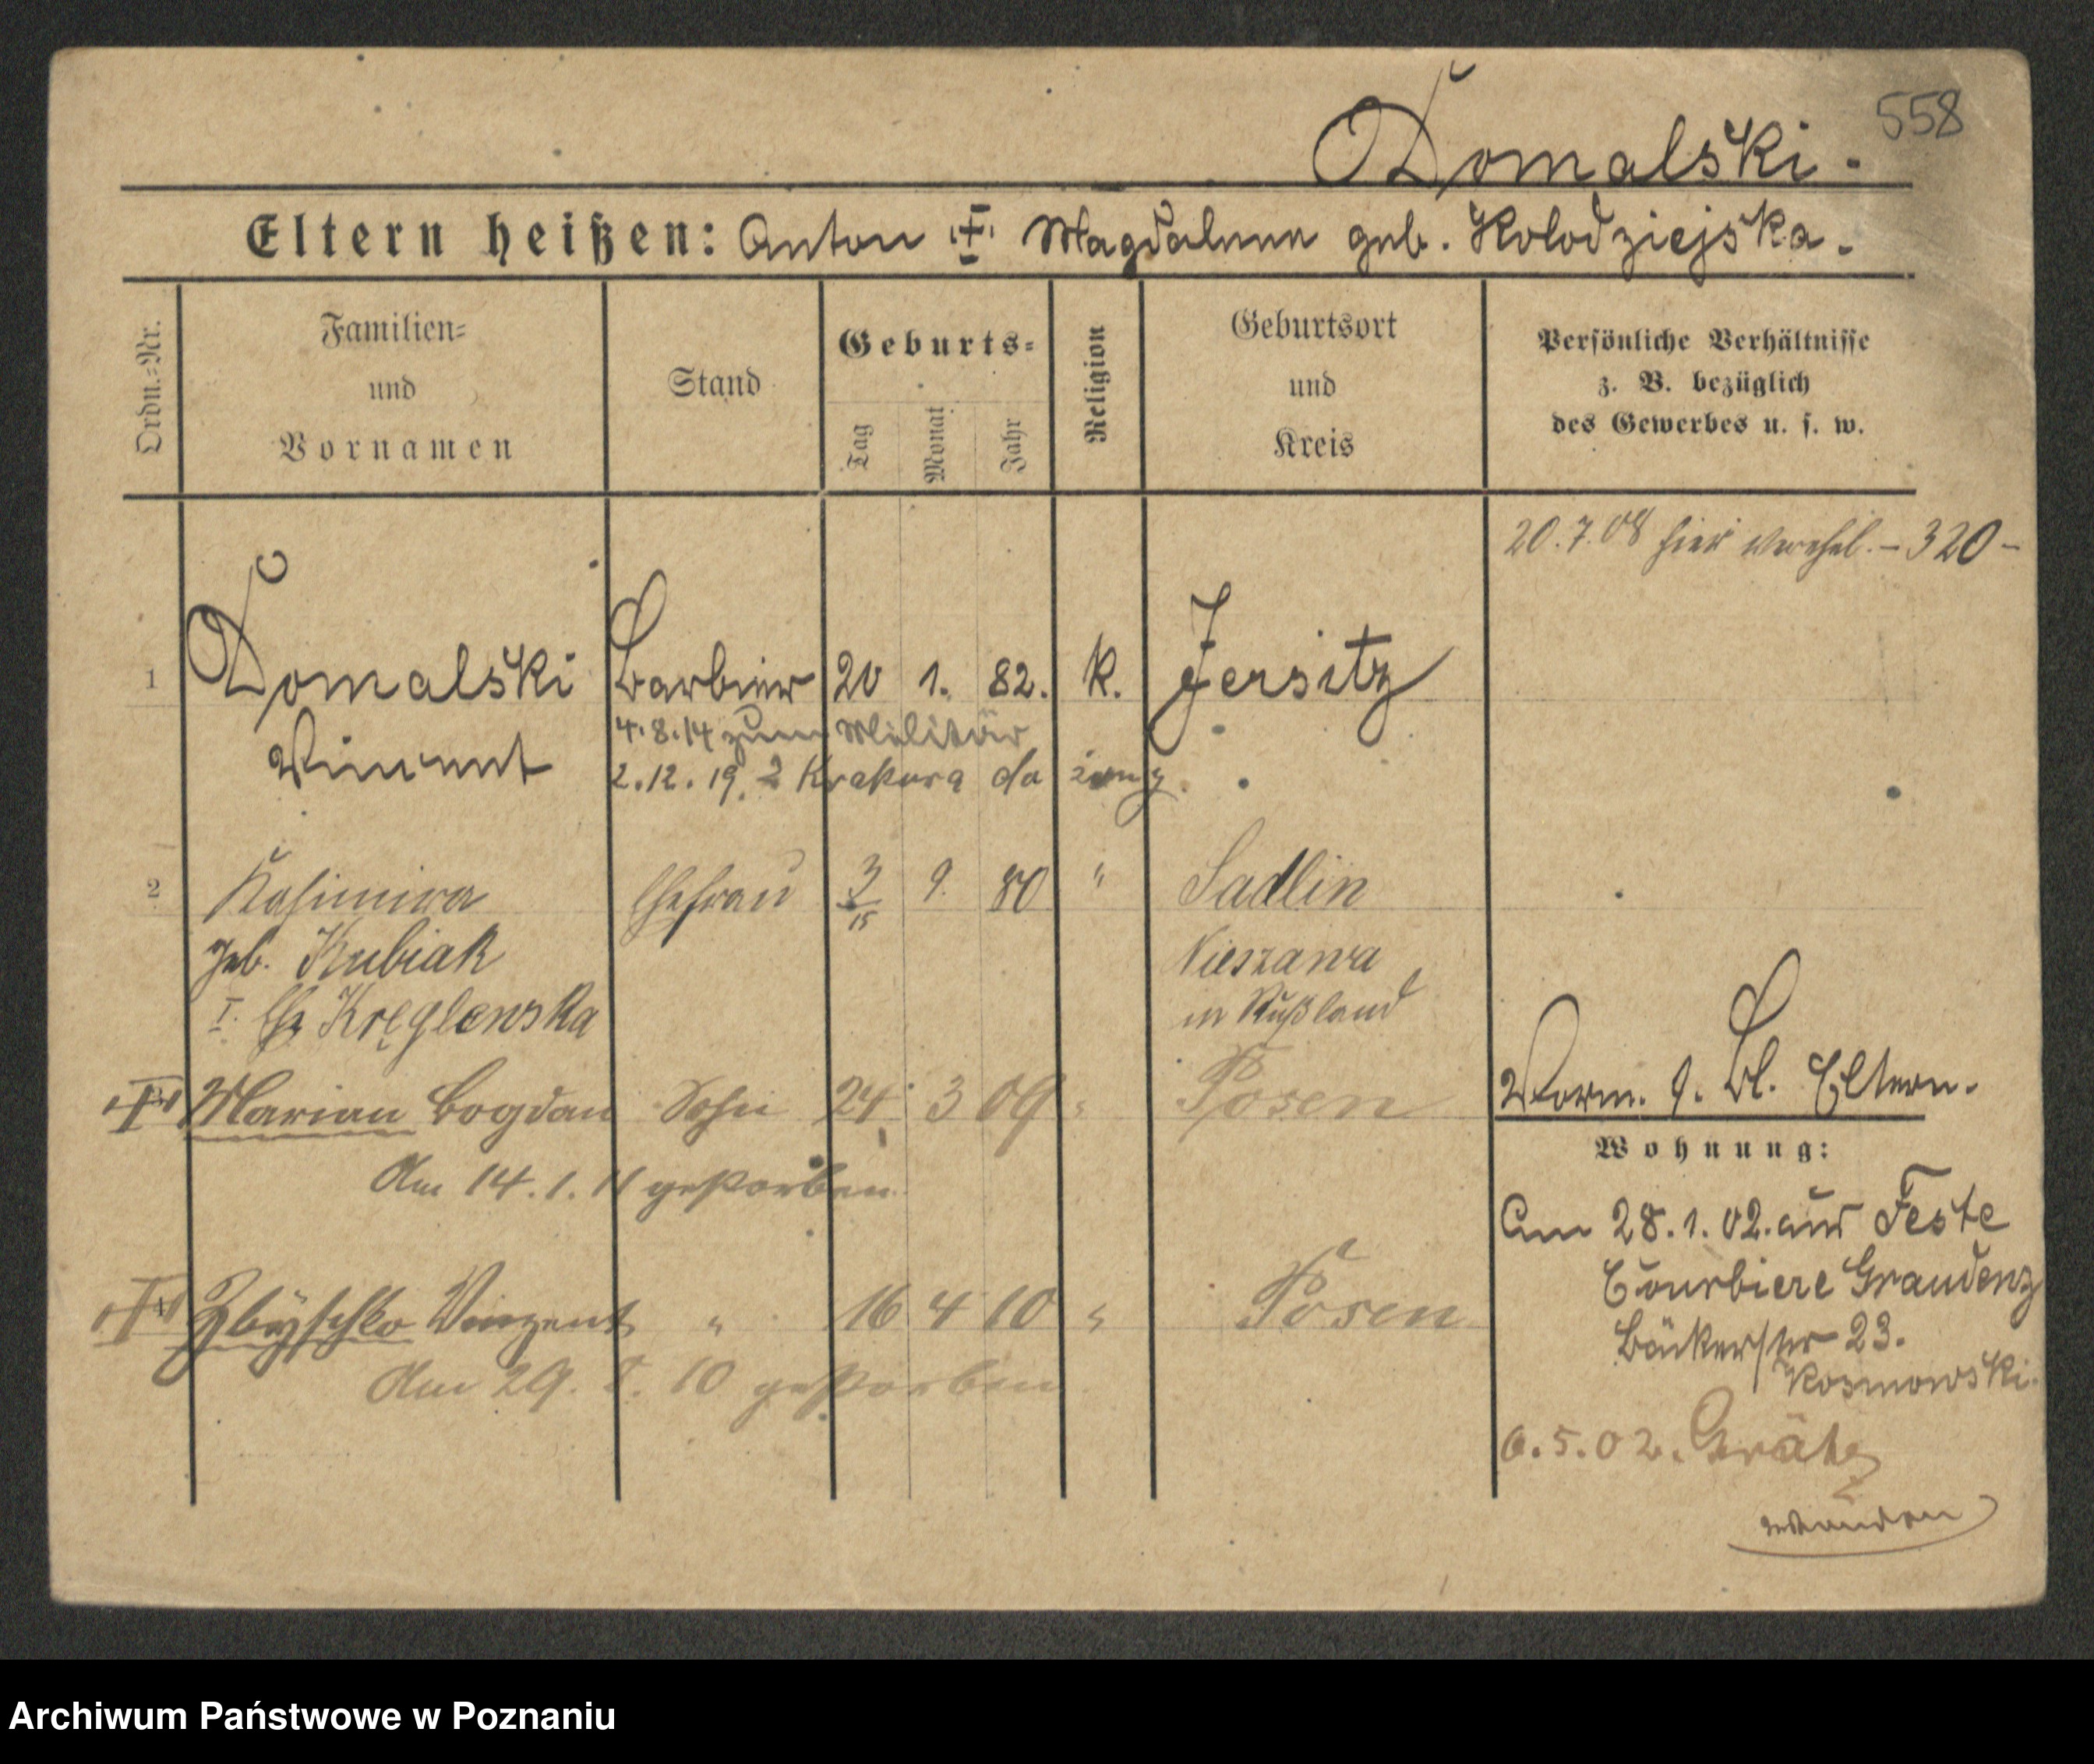 558
Domalski.
Eltern heißen: Anton ✝ Magdalena geb. Kolodziejska.
Ordn.=Nr.
Familien= und Vornamen
Stand
Geburts=
Tag
Monat
Jahr
Religion
Geburtsort und Kreis
Persönliche Verhältnisse
z. B. bezüglich
des Gewerbes u. s. w.
20.7.08 hier verehel. – 320 –
1 Domalski Barbier 20 1. 82. k. Jersitz
Vincent
4.8.14 zum Militär
2.12.19. z Krakowa do żony.
2 Kasimira Ehefrau 3/15 9. 80 " Sadlin
geb. Kubiak Nieszawa
I. Ehe Kręglewska in Rußland
✝ Marian Bogdan Sohn 24. 3 09 " Posen
Am 14.1.11 gestorben
✝ Zbyschko Vinzent " 16 4 10 " Posen
Am 29. 10 gestorben
Vorm. s. Bl. Eltern.
Wohnung:
Am 28.1.02. aus Feste
Courbiere Graudenz
Bäckerstr 23.
Kosmowski.
6.5.02. Grätz
Archiwum Państwowe w Poznaniu